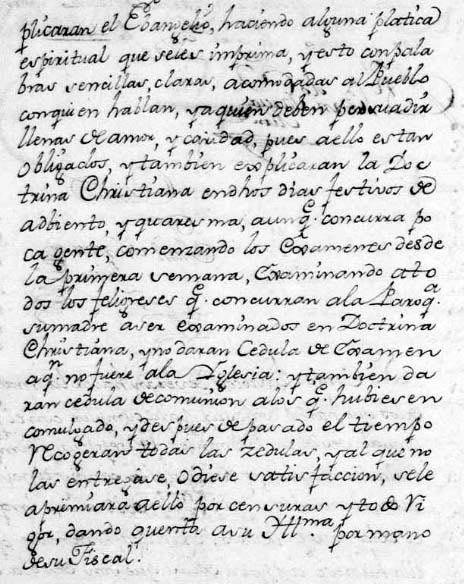 plicaran el Evangelio, haciendo alguna platica
espiritual que seles imprima, y esto con pala
bras sencillas, claras, acomodadas al Pueblo
con quien hablan, y a quien deben persuadir
llenas de amor, y caridad, pues a ello estan
obligados, y tambien explicaran la Doc
trina Christiana en dhos dias festivos de
adbiento, y quaresma, aunq. concurra po
ca gente, comenzando los Examenes desde
la primera semana, Examinando a to
dos los feligreses q. concurran a la Paroq.a
su madre a ser examinados en Doctrina
Christiana, y no daran Cedula de Examen
a qn. no fuere a la Yglesia: y tambien da
ran cedula de comunion a los q. hubiesen
comulgado, y despues de pasado el tiempo
recogeran todas las zedulas, y al que no
las entregase, o diese satisfaccion, se le
apremiara a ello por censuras y todo Vi
gor, dando quenta a su Yll.ma por mano
de su Fiscal.